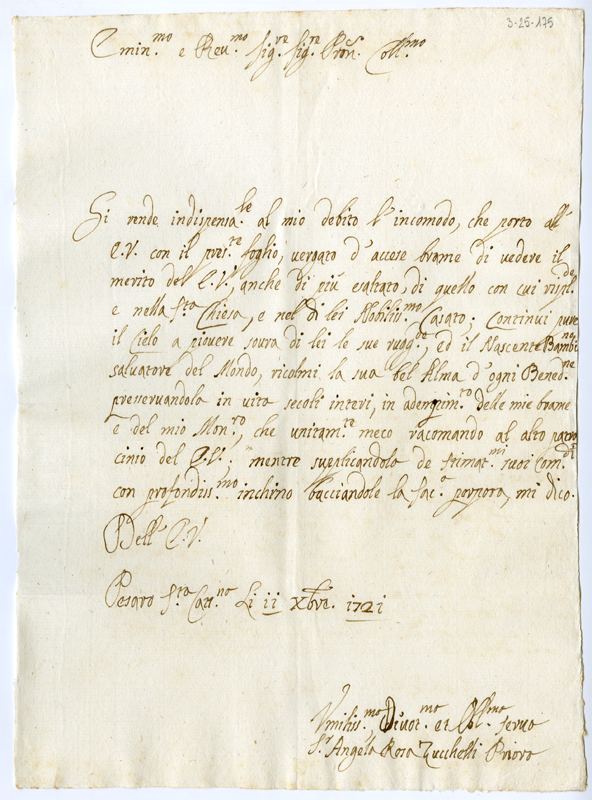 3-25-175
Emin.mo e Reu.mo Sig.re Sig.re Pron. Coll.mo
Si rende indispensa.le al mio debito l'incomodo, che porto all'
E.V. con il pres.te foglio, vergato d'accese brame di vedere il
merito del E.V., anche di più esaltato, di quello con cui
e nella S.ta Chiesa, e nel di lei Nobilis.mo Casato; Continui pure
il Cielo a piouere soura di lei le sue rugg.de, ed il Nascente Bambi.no
saluatore del Mondo, ricolmi la sua bel Alma d'ogni Bened.ne
preseruandola in vita secoli interi, in adempim.to delle mie brame
e del mio Mon.ro, che unitam.te meco racomando al alto patro
cinio del E.V., mentre suplicandola de stimat.mi suoi Com.di
con profondiss.mo inchino bacciandole la sac.a porpora, mi dico.
Dell' E.V.
Pesaro S.ta Catt.na Li 11 Xbre. 1721
Vmiliss.mo Diuot.mo et Obl.mo serua
S.r Angela Rosa Zucchelli Priora